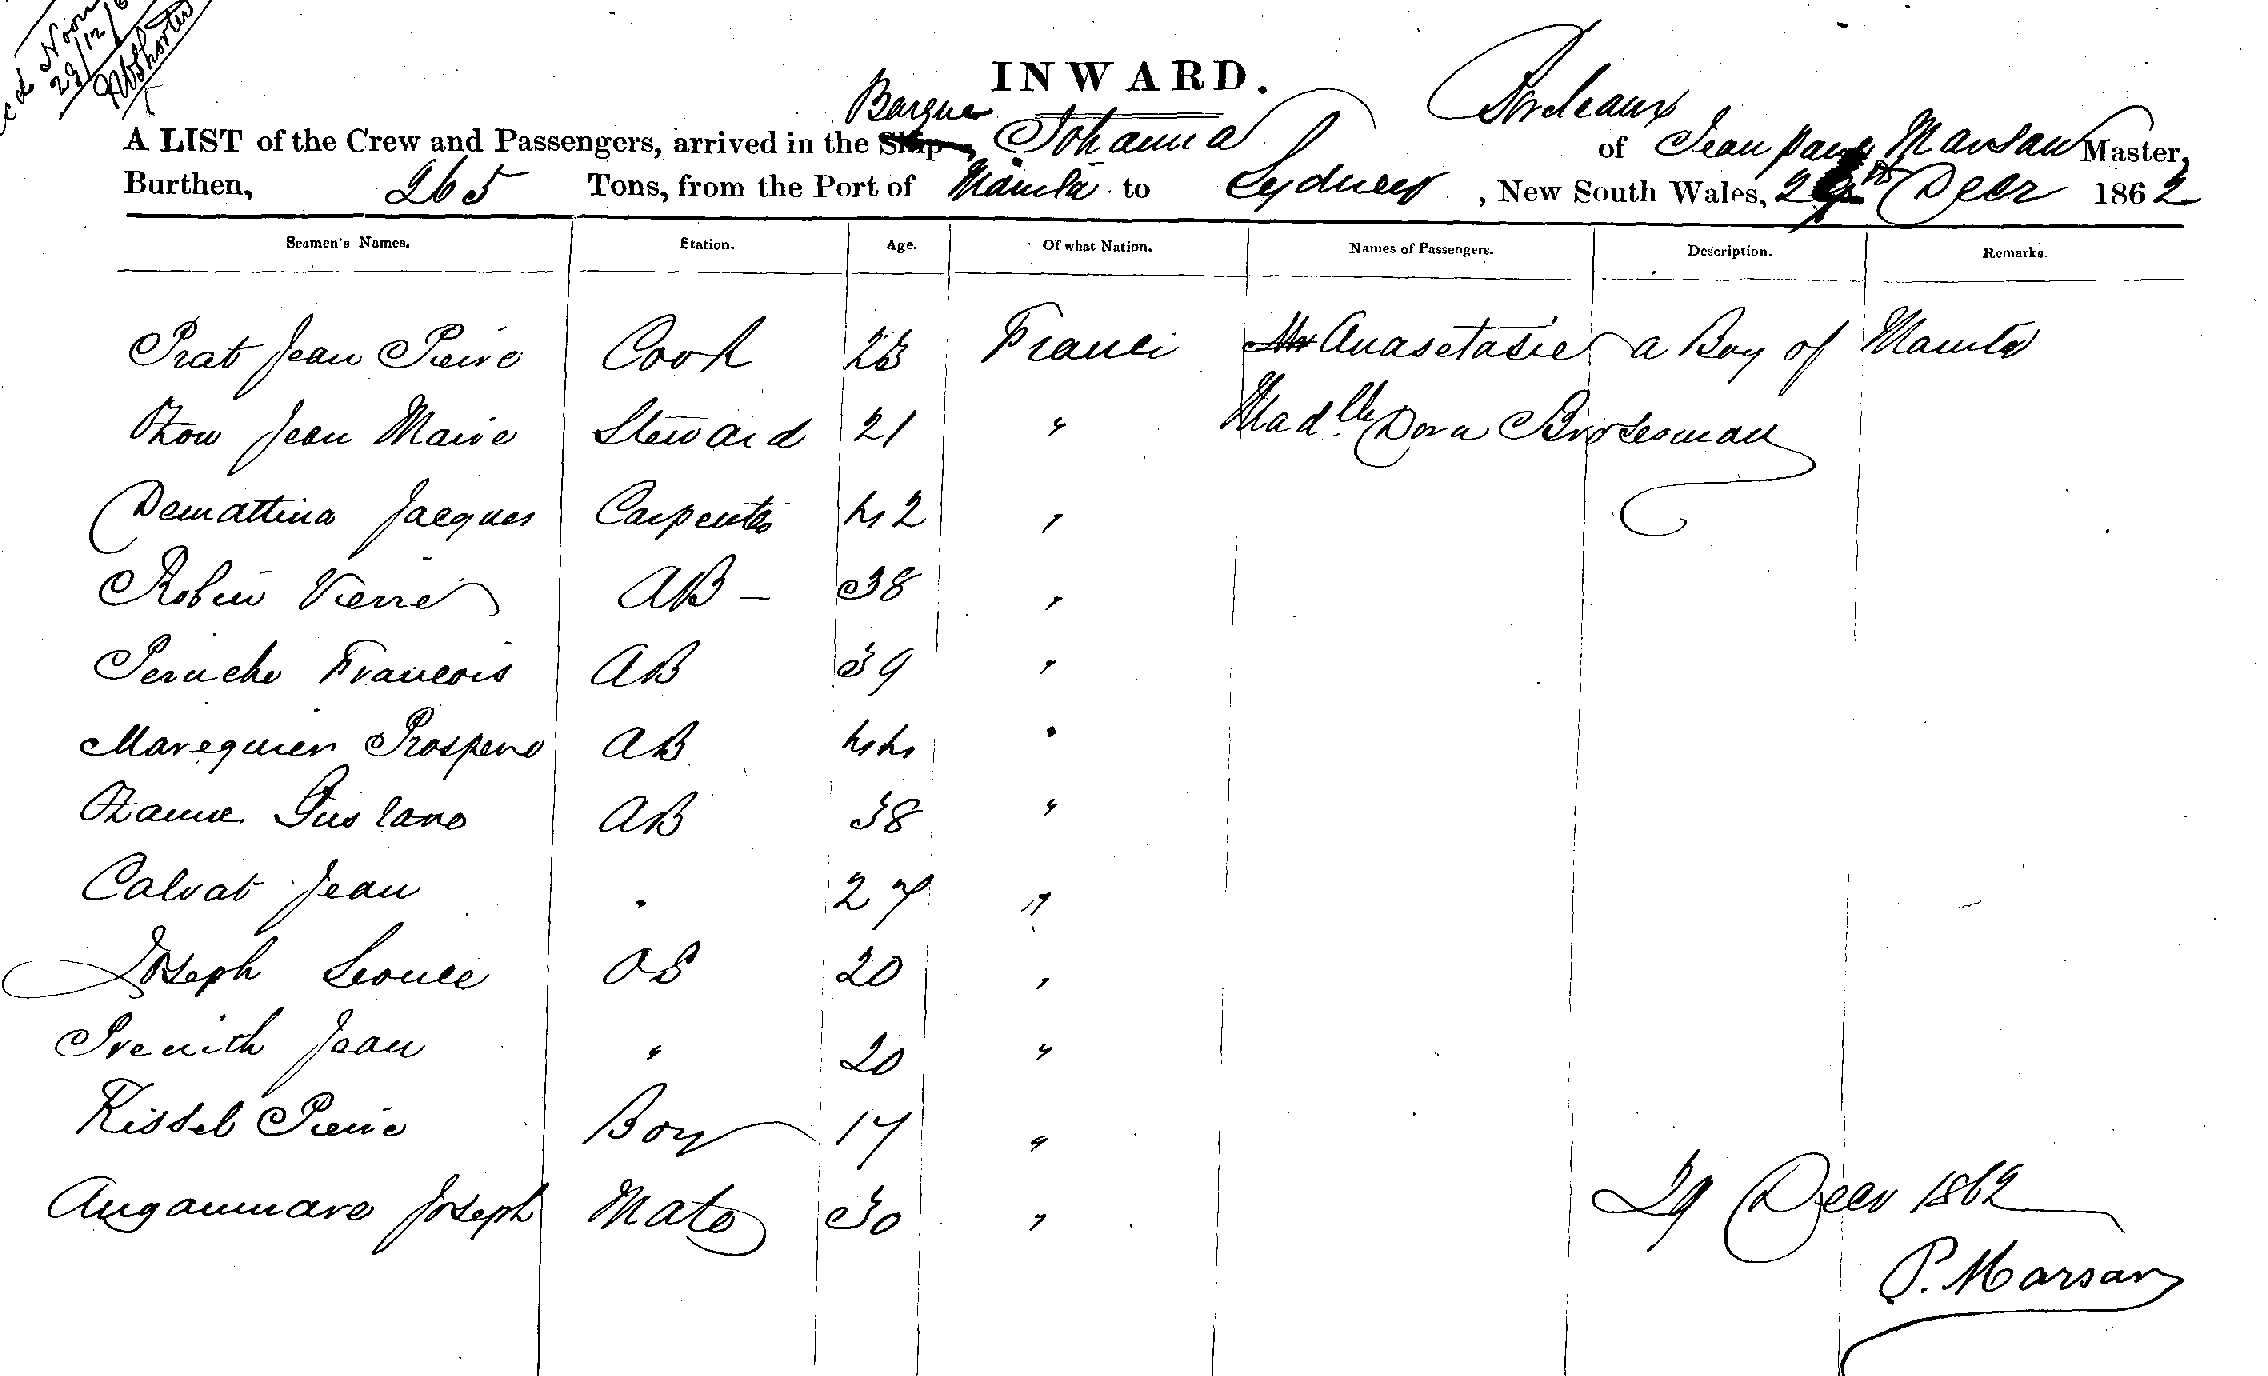 Noon
29/12/6
INWARD.
Barque
Bordeaux
A LIST of the Crew and Passengers, arrived in the Ship Johanna of Jean Marsan Master,
Burthen, 265 Tons, from the Port of Manila to Sydney, New South Wales, 29th Decr 1862
Seamen's Names. Station. Age. Of what Nation. Names of Passengers. Description. Remarks.
Prat Jean Pierre Cook 23 France Anastasie a Boy of Manila
Jean Marie Steward 21 " Madlle Dora Broseman
Demattina Jacques Carpenter 42 "
Robin Pierre AB - 38 "
Peruche Francois AB 39 "
Marequier Prospero AB 44 "
Gustave AB 38 "
Calvat Jean " 27 "
Joseph Leonce OS 20 "
Jean " 20 "
Kissel Pierre Boy 17 "
Joseph Mate 30 "
29 Decr 1862
P. Marsan